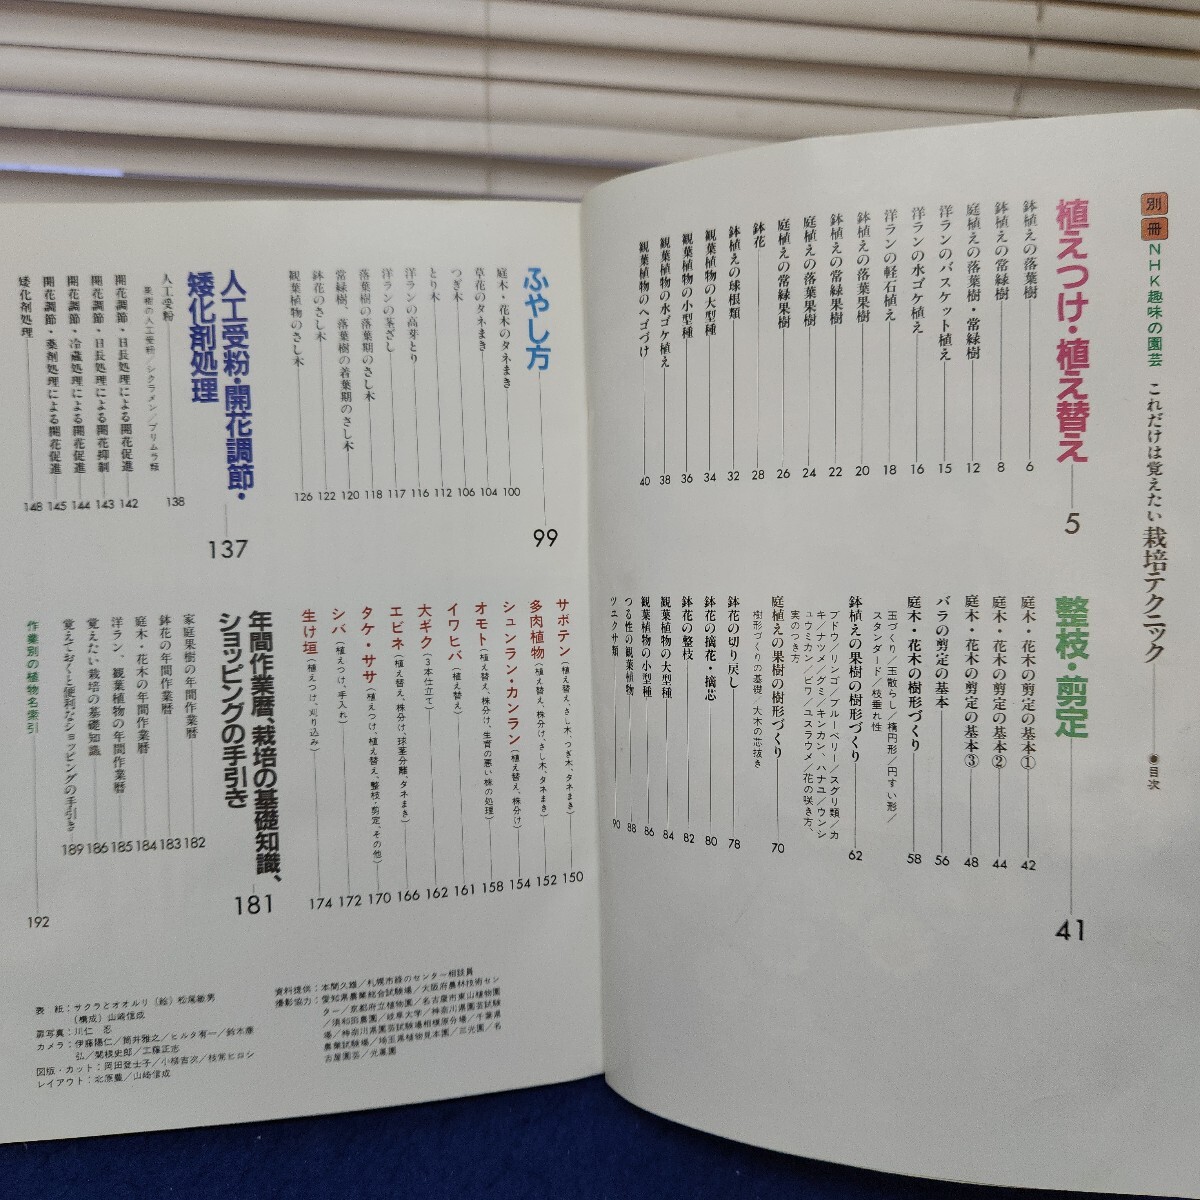 別冊 NHK趣味の園芸 これだけは覚えたい栽培テクニック ●目次
植えつけ・植え替え 5
鉢植えの落葉樹 6
鉢植えの常緑樹 8
庭植えの落葉樹・常緑樹 12
洋ランのバスケット植え 15
洋ランの水ゴケ植え 16
洋ランの軽石植え 18
鉢植えの落葉果樹 20
鉢植えの常緑果樹 22
庭植えの落葉果樹 24
庭植えの常緑果樹 26
鉢花 28
鉢植えの球根類 32
観葉植物の大型種 34
観葉植物の小型種 36
観葉植物の水ゴケ植え 38
観葉植物のヘゴづけ 40
整枝・剪定 41
庭木・花木の剪定の基本① 42
庭木・花木の剪定の基本② 44
庭木・花木の剪定の基本③ 48
バラの剪定の基本 56
庭木・花木の樹形づくり 58
玉づくり／玉散らし／楕円形／円すい形／
スタンダード／枝垂れ性
鉢植えの果樹の樹形づくり 62
ブドウ／リンゴ／ブルーベリー／スグリ類／カ
キ／ナツメ／グミ／キンカン、ハナユ／ウンシ
ュウミカン／ビワ／ユスラウメ／花の咲き方、
実のつき方
庭植えの果樹の樹形づくり 70
樹形づくりの基礎、大木の芯抜き
鉢花の切り戻し 78
鉢花の摘花・摘芯 80
鉢花の整枝 82
観葉植物の大型種 84
観葉植物の小型種 86
つる性の観葉植物 88
ツユクサ類 90
ふやし方 99
庭木・花木のタネまき 100
草花のタネまき 104
つぎ木 106
とり木 112
洋ランの高芽とり 116
洋ランの茎ざし 117
落葉樹の落葉期のさし木 118
常緑樹、落葉樹の着葉期のさし木 120
鉢花のさし木 122
観葉植物のさし木 126
人工受粉・開花調節・
矮化剤処理 137
人工受粉 138
果樹の人工受粉／シクラメン／プリムラ類
開花調節・日長処理による開花促進 142
開花調節・日長処理による開花抑制 143
開花調節・冷蔵処理による開花促進 144
開花調節・薬剤処理による開花促進 145
矮化剤処理 148
サボテン（植え替え、さし木、つぎ木、タネまき） 150
多肉植物（植え替え、株分け、さし木、タネまき） 152
シュンラン・カンラン（植え替え、株分け） 154
オモト（植え替え、株分け、生育の悪い株の処理） 158
イワヒバ（植え替え） 161
大ギク（3本仕立て） 162
エビネ（植え替え、株分け、球茎分離、タネまき） 166
タケ・ササ（植えつけ、植え替え、整枝・剪定、その他） 170
シバ（植えつけ、手入れ） 172
生け垣（植えつけ、刈り込み） 174
年間作業暦、栽培の基礎知識、
ショッピングの手引き 181
家庭果樹の年間作業暦 182
鉢花の年間作業暦 183
庭木・花木の年間作業暦 184
洋ラン、観葉植物の年間作業暦 185
覚えたい栽培の基礎知識 186
覚えておくと便利なショッピングの手引き 189
作業別の植物名索引 192
資料提供：本間久雄／札幌市緑のセンター相談員
撮影協力：愛知県農業総合試験場／大阪府農林技術セン
ター／京都府立植物園／名古屋市東山植物園
／須和田農園／岐阜大学／神奈川県園芸試験
場／神奈川県園芸試験場相模原分場／千葉県
農業試験場／埼玉県植物見本園／三光園／名
古屋園芸／光薫園
表 紙：サクラとオオルリ（絵）松尾敏男
（構成）山崎信成
扉写真：川仁 忍
カメラ：伊藤陽仁／筒井雅之／ヒルタ有一／鈴木康
弘／関根史郎／工藤正志
図版・カット：岡田登士子／小椋吉次／枝常ヒロシ
レイアウト：北原豊／山崎信成